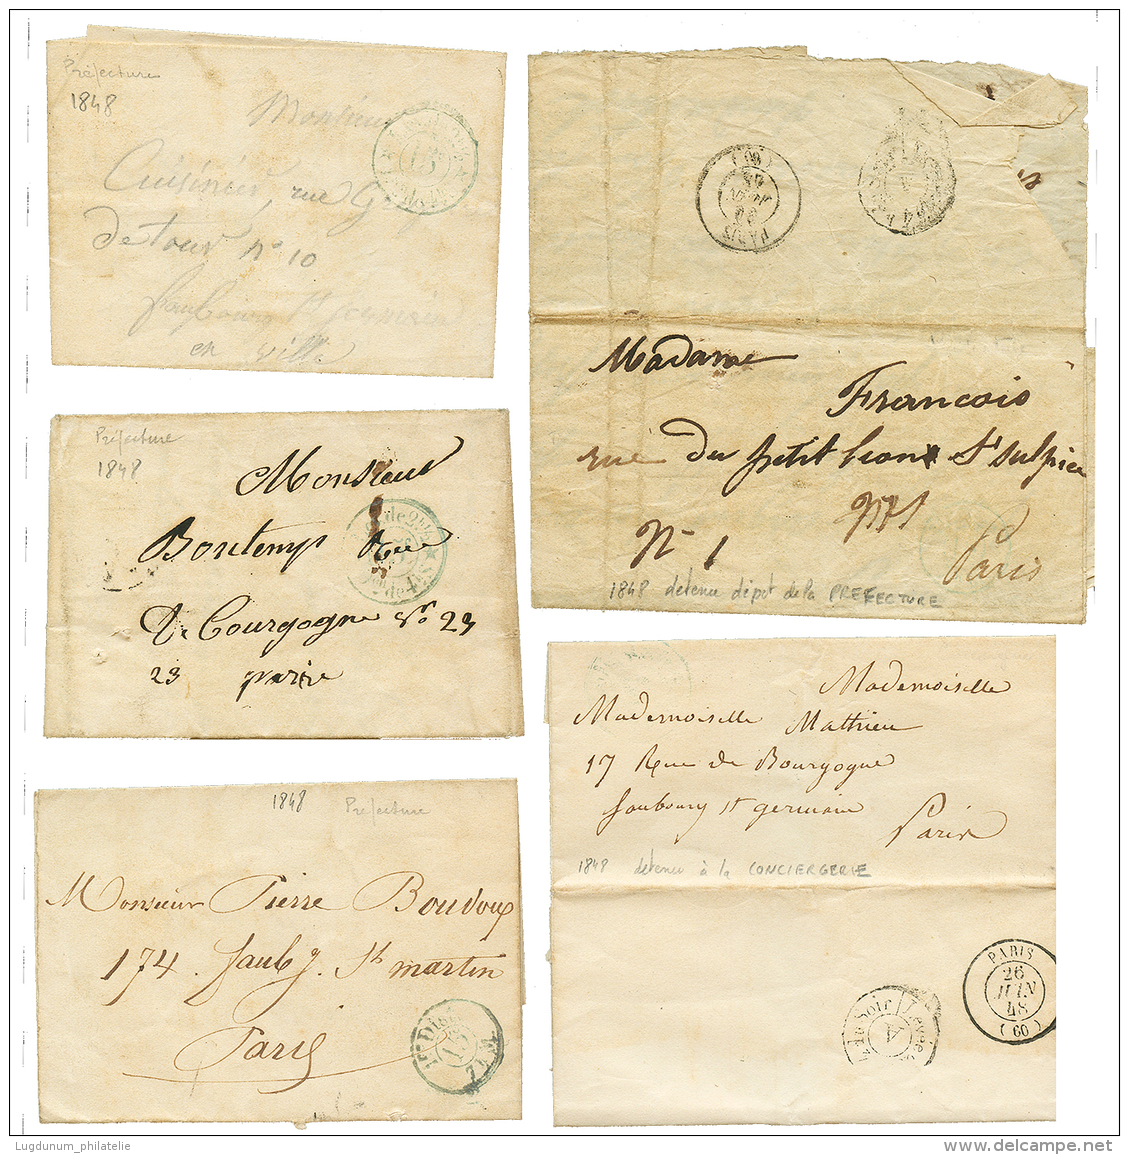 Préfecture
1848
Monsieur
Cuisinier, rue
detour n° 10
faubourg St germain
en ville
PARIS
(60)
Madame
Francois
rue du petit lion St Sulpice
N° 1
Paris
1848 detenu dépot de la PREFECTURE
Préfecture
1848
Monsieur
Bontemps Rue
de Bourgogne No 23
23 parise
1848 Préfecture
Monsieur Pierre Boudoux
174. faubg. St martin
Paris
15
Mademoiselle
Mademoiselle Mathieu
17 Rue de Bourgogne
faubourg st germain
Paris
1848 detenu à la CONCIERGERIE
PARIS
26
JUIN
48
(60)
du Soir
Levée
Lugdunum_philatelie
delcampe.net